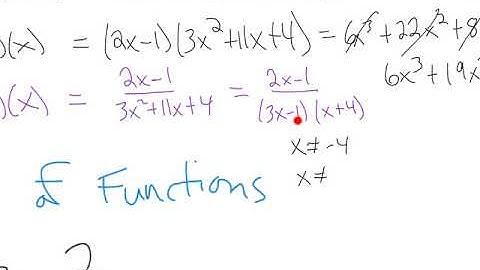 )(x) = (2x-1)(3x²+11x+4) = 6x³+22x²+8
6x³+19x
)(x) = \frac{2x-1}{3x²+11x+4} = \frac{2x-1}{(3x-1)(x+4)}
x≠-4
x≠
of Functions
2